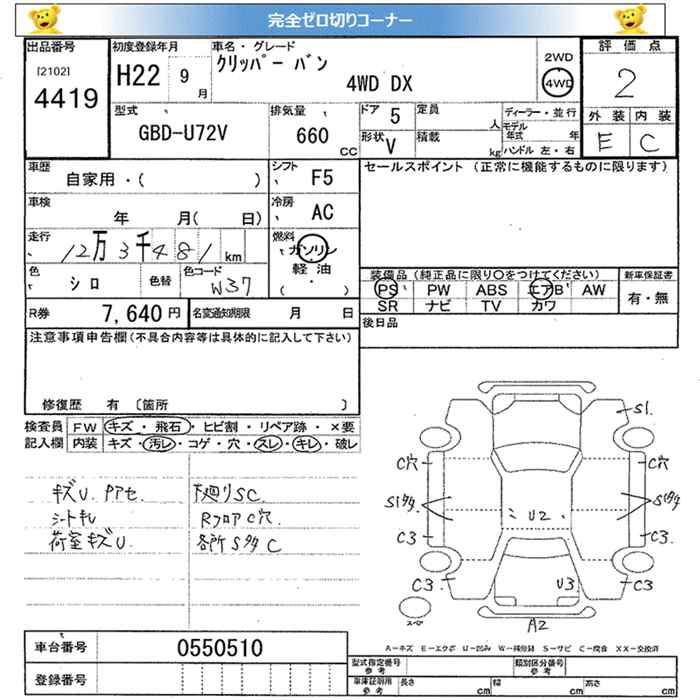 完全ゼロ切りコーナー
出品番号
[2102]
4419
初度登録年月
H22 9月
車名・グレード
クリッパー バン
4WD DX
2WD
4WD
評価点
2
外装 内装
E C
型式
GBD-U72V
排気量
660 CC
ドア 5
形状 V
定員 人
積載 kg
ディーラー・並行
モデル年式 年
ハンドル 左・右
車歴
自家用・( )
シフト F5
セールスポイント (正常に機能するものに限ります)
車検
年 月( 日)
冷房 AC
走行
12万3千481km
燃料
ガソリン
軽油
( ・ )
色
シロ
色替
色コード
W37
装備品 (純正品に限り○をつけてください)
PS PW ABS エアB AW
SR ナビ TV カワ
新車保証書
有・無
R券 7,640円
名変通知期限 月 日
後日品
注意事項申告欄(不具合内容等は具体的に記入して下さい)
修復歴 有 〔箇所 〕
検査員記入欄
FW キズ・飛石・ヒビ割・リペア跡・×要
内装 キズ・汚レ・コゲ・穴・スレ・キレ・破レ
キズU.
シートキレ
荷室キズU
下廻りSC
RフロアC穴.
各所 C
S1.
C穴
C穴
U2
C3
C3.
C3
C3
U3
A2
A－キズ E－エクボ U－凹み W－補修跡 S－サビ C－腐食 XX－交換済
車台番号 0550510
登録番号
型式指定番号
参考
類別区分番号
参考
車庫証明用
参考
長さ cm 幅 cm 高さ cm